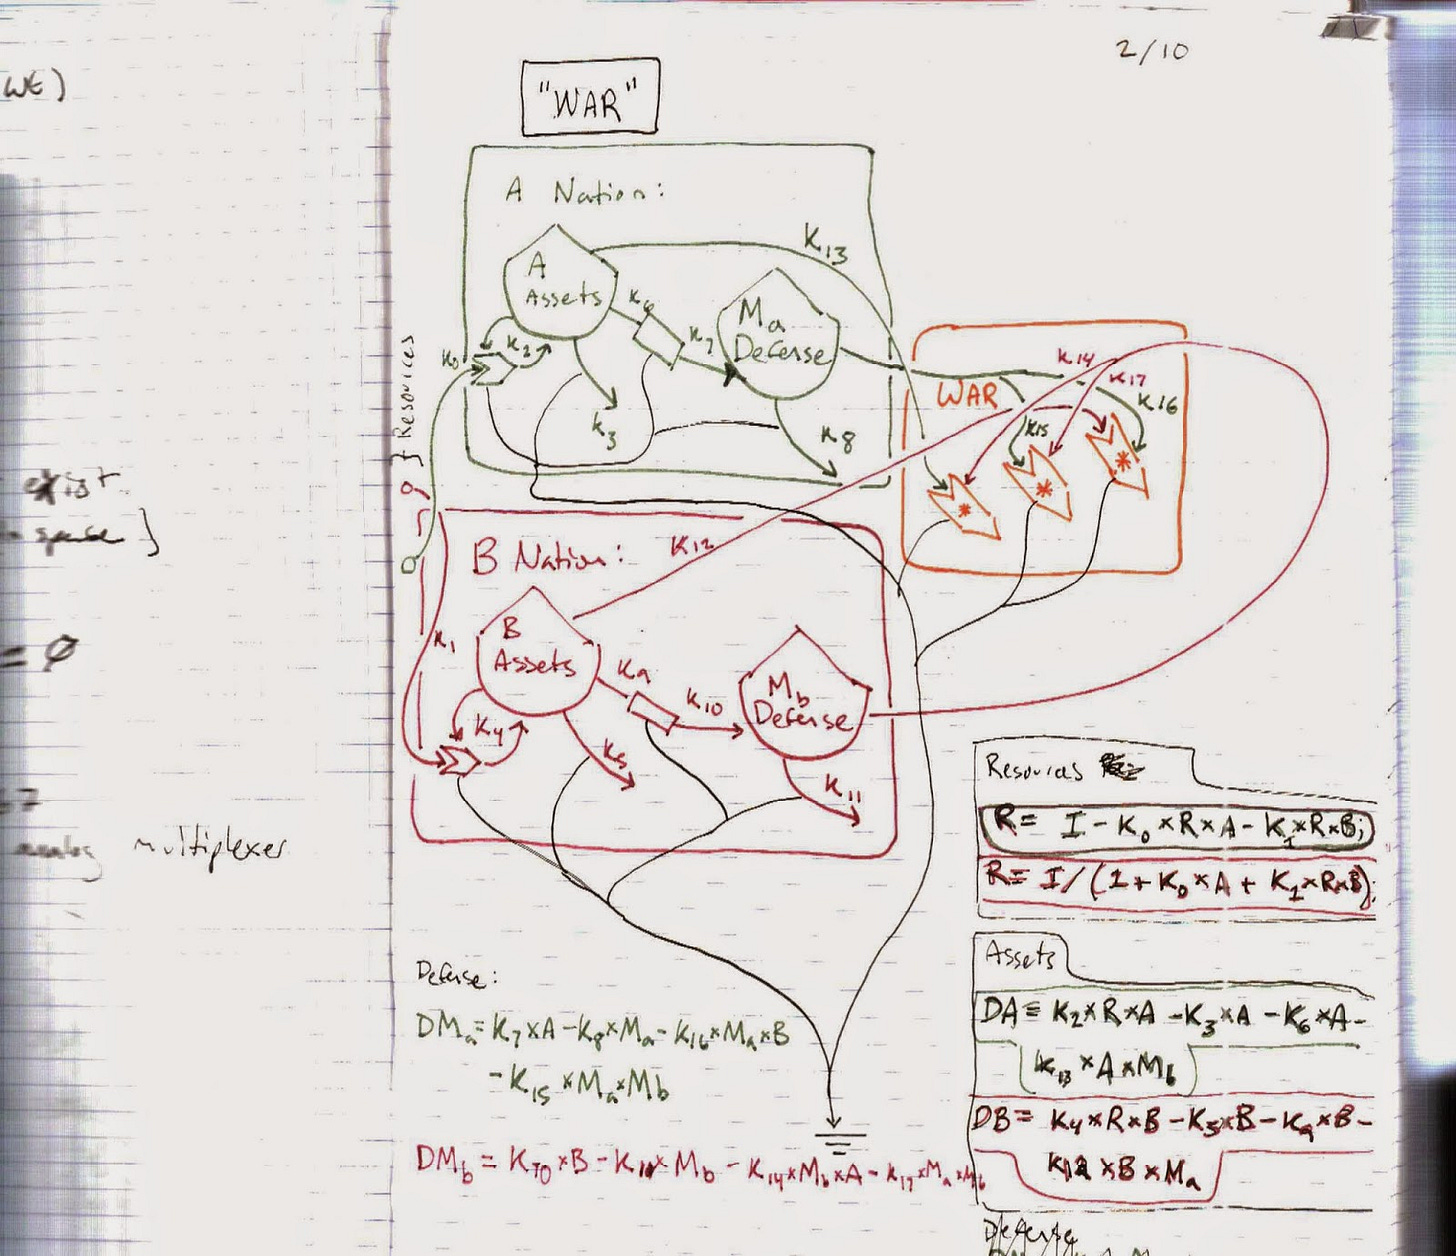 WE)
exist
space ]
= Ø
analog multiplexer
2/10
"WAR"
A Nation:
K13
A
Assets
K6
K7
Ma
Defense
K0
K2
K3
K8
} Resources
WAR
K14
K17
K16
K15
B Nation:
K12
K1
B
Assets
K9
K10
Mb
Defense
K4
K5
K11
Resources
R= I - K0 × R × A - K1 × R × B;
R= I/(1 + K0 × A + K1 × R×B);
Assets
DA= K2 × R × A - K3 × A - K6 × A -
K13 × A × Mb
DB= K4 × R × B - K5 × B - K9 × B -
K12 × B × Ma
Defense:
DMa = K7 × A - K8 × Ma - K16 × Ma × B
- K15 × Ma × Mb
DMb = K10 × B - K11 × Mb - K14 × Mb × A - K17 × Ma × Mb
Defense